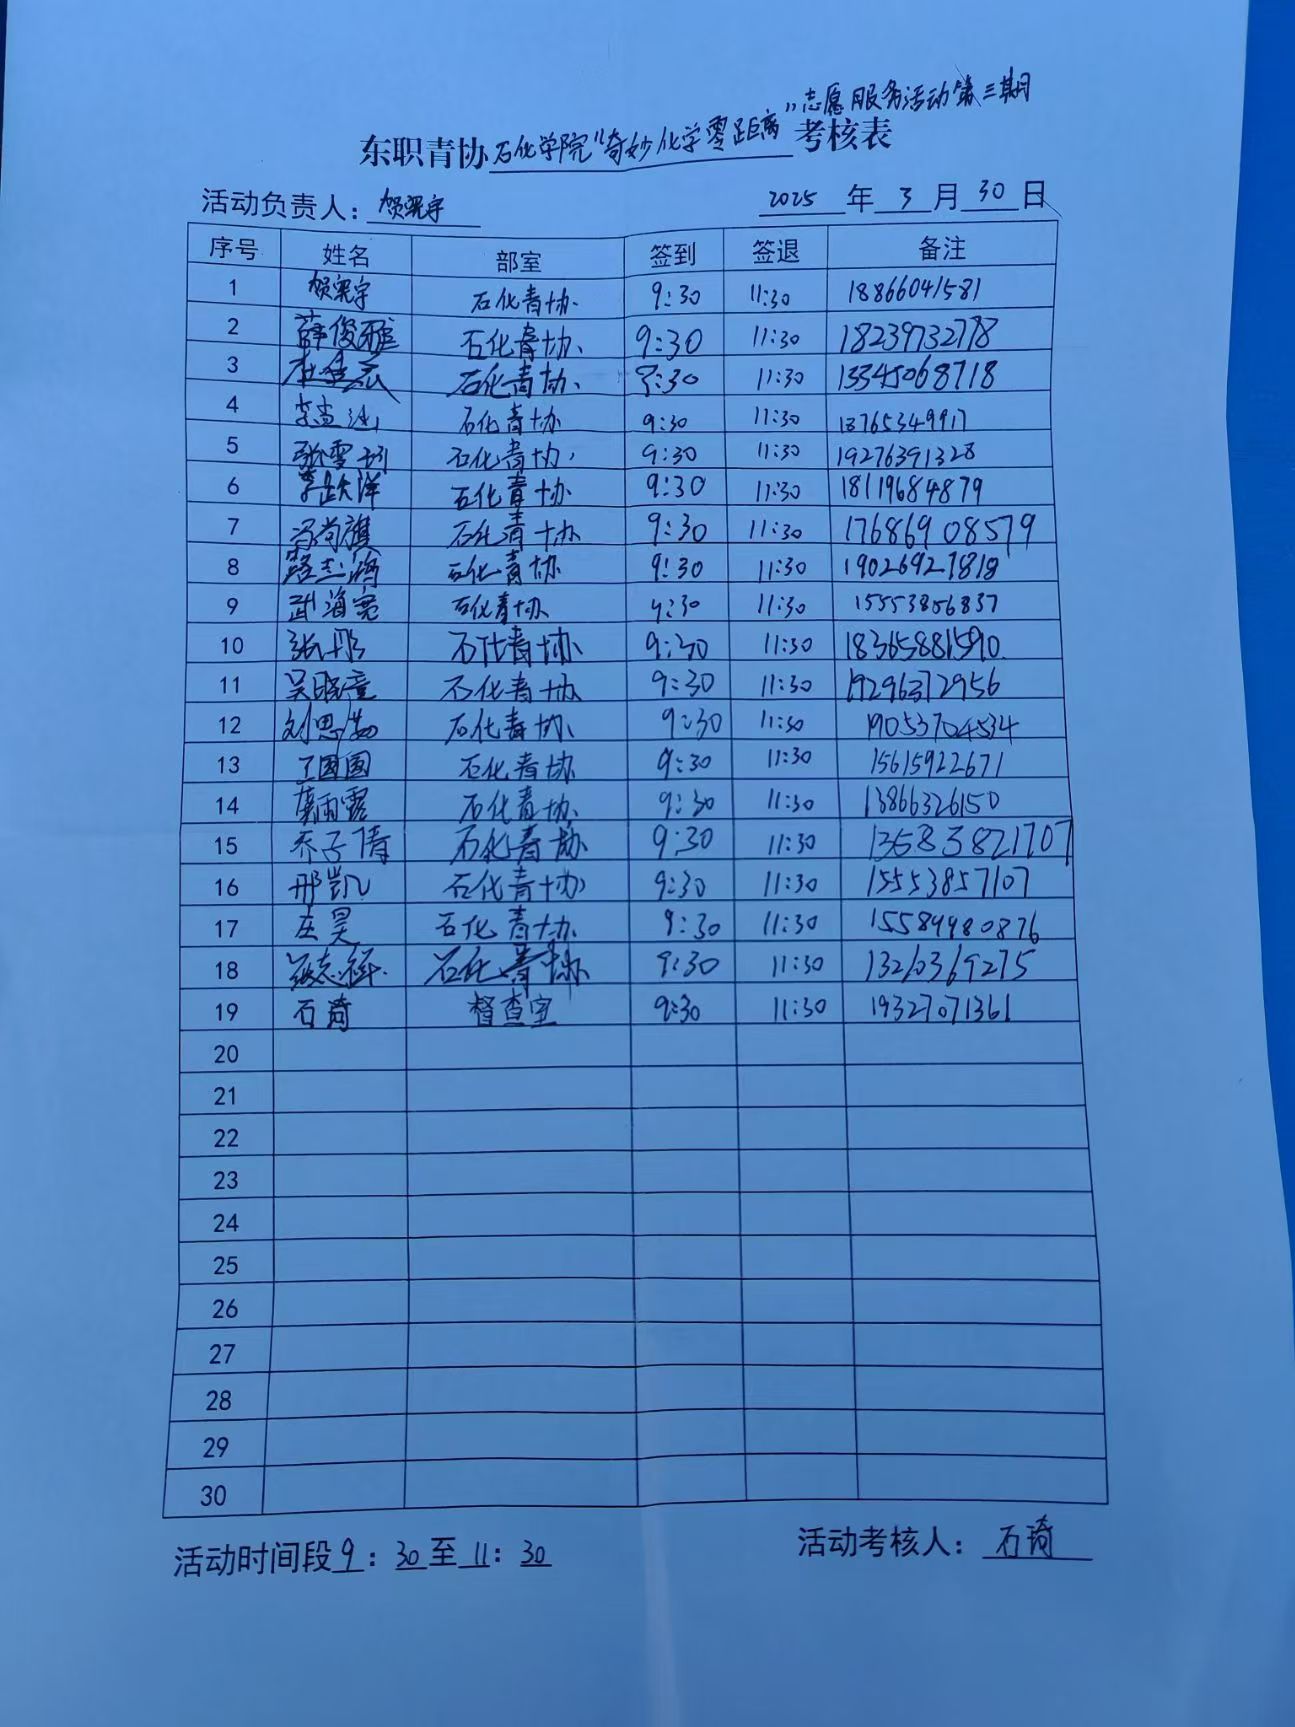 ”志愿服务活动第三期
东职青协石化学院“奇妙化学零距离 考核表
活动负责人：贺梁宇 2025 年 3 月 30 日
序号 姓名 部室 签到 签退 备注
1 贺梁宇 石化青协 9:30 11:30 18866041581
2 薛俊雅 石化青协 9:30 11:30 18239732778
3 石化青协 9:30 11:30 13345068718
4 石化青协 9:30 11:30 13765349917
5 张雪 石化青协 9:30 11:30 19276391328
6 李跃洋 石化青协 9:30 11:30 18119684879
7 冯尚旗 石化青协 9:30 11:30 17686908579
8 石化青协 9:30 11:30 19026927818
9 武海宽 石化青协 9:30 11:30 15553856837
10 张彤 石化青协 9:30 11:30 18365881590
11 吴晓童 石化青协 9:30 11:30 19296372956
12 刘思 石化青协 9:30 11:30 19053704534
13 王圆圆 石化青协 9:30 11:30 15615922671
14 雨露 石化青协 9:30 11:30 13866326150
15 乔子倩 石化青协 9:30 11:30 13583821707
16 邢凯 石化青协 9:30 11:30 15553857107
17 庄昊 石化青协 9:30 11:30 15589980876
18 志祥 石化青协 9:30 11:30 13210369275
19 石琦 督查室 9:30 11:30 19327071361
20
21
22
23
24
25
26
27
28
29
30
活动时间段 9：30 至 11：30 活动考核人：石琦